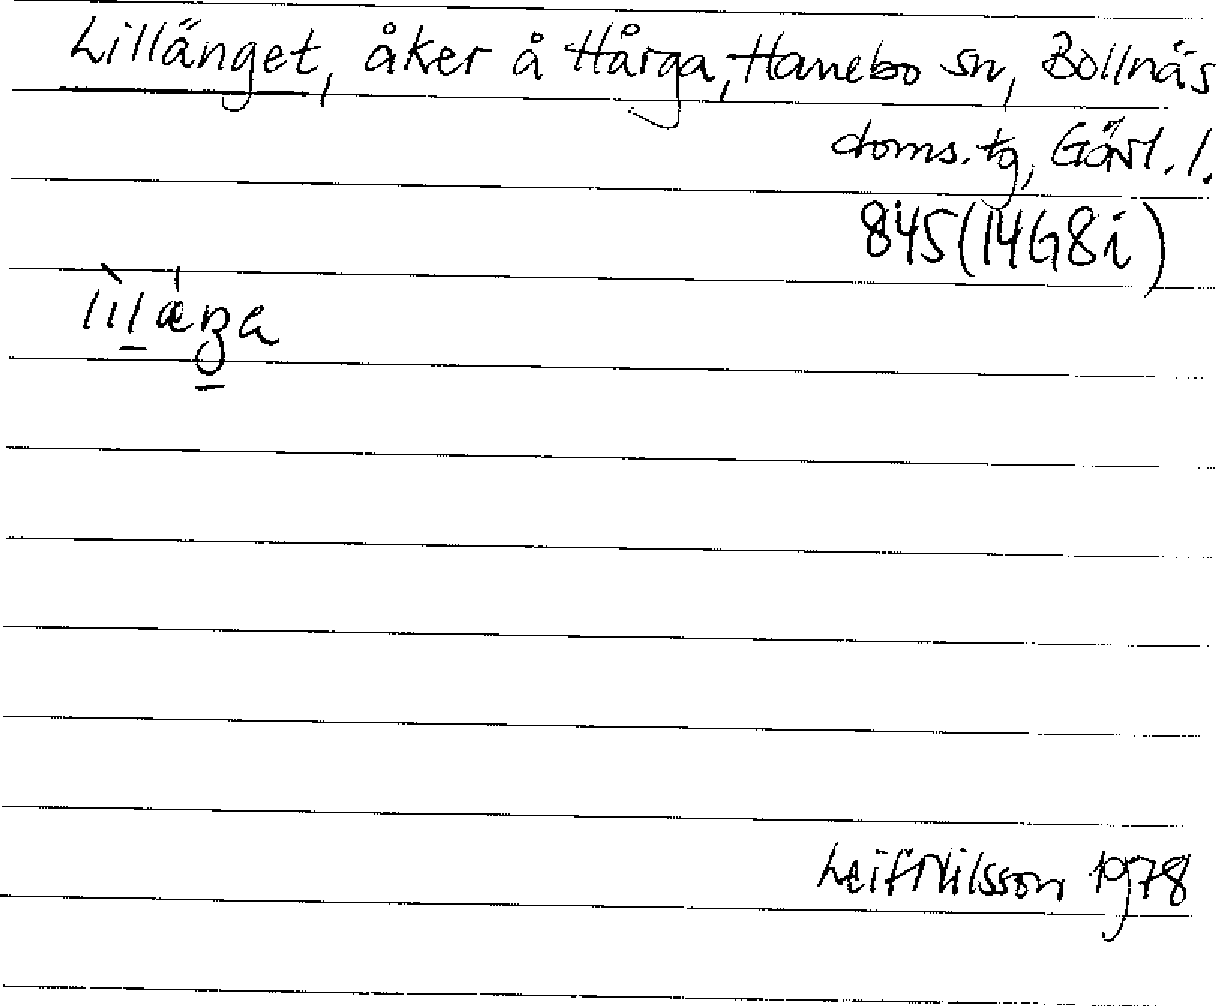 Lillänget, åker å Hårga, Hanebo sn, Bollnäs
doms. tg, Gävl. l.
845 (14G8i)
Leif Nilsson 1978